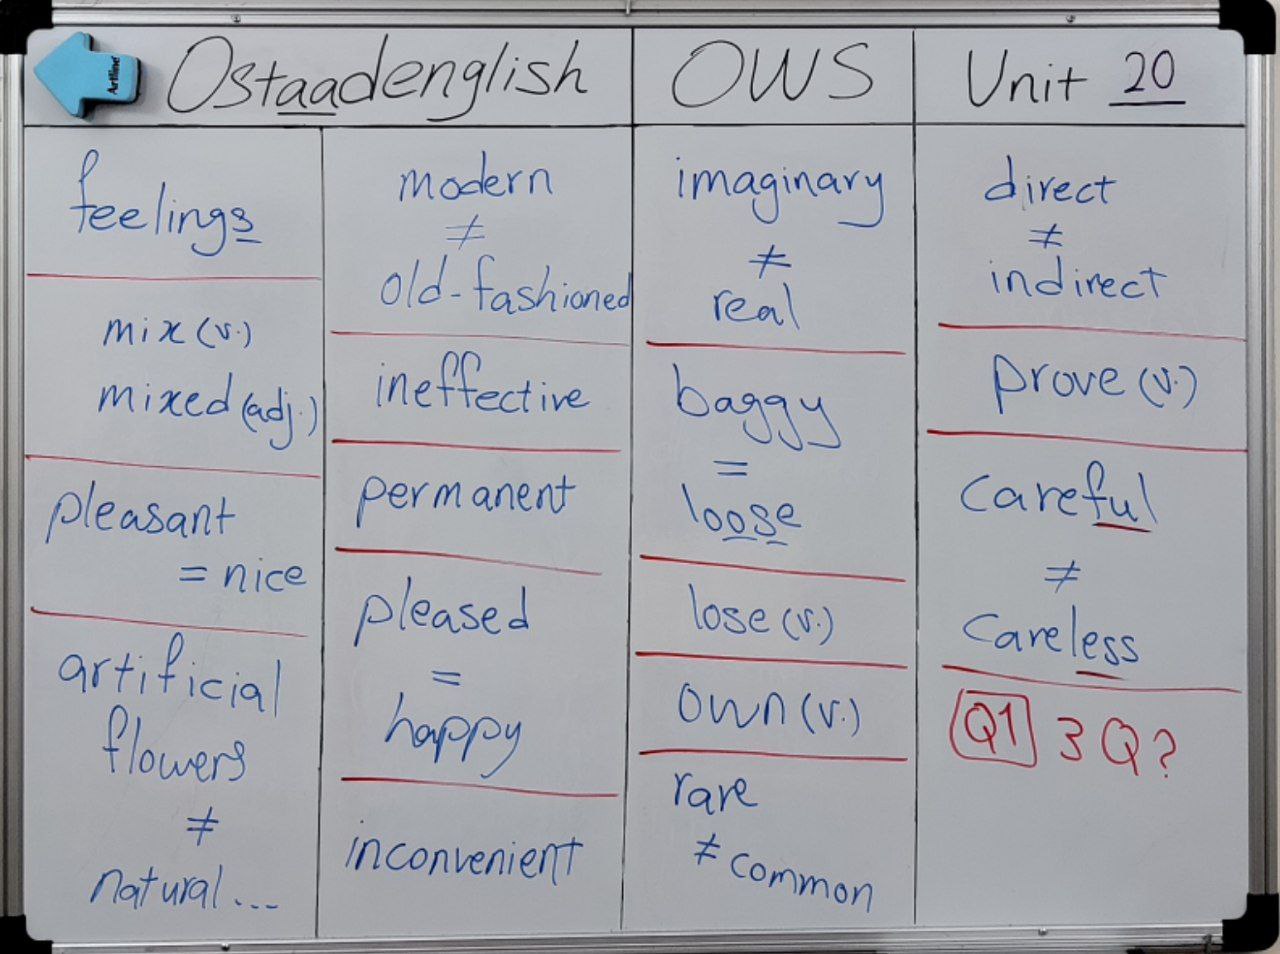 Artline
Ostaadenglish
OWS
Unit 20
feelings
mix (v.)
mixed (adj.)
pleasant
= nice
artificial
flowers
≠
natural...
modern
≠
old-fashioned
ineffective
permanent
pleased
=
happy
inconvenient
imaginary
≠
real
baggy
=
loose
lose (v.)
own (v.)
rare
≠ common
direct
≠
indirect
prove (v.)
careful
≠
careless
Q1 3 Q?